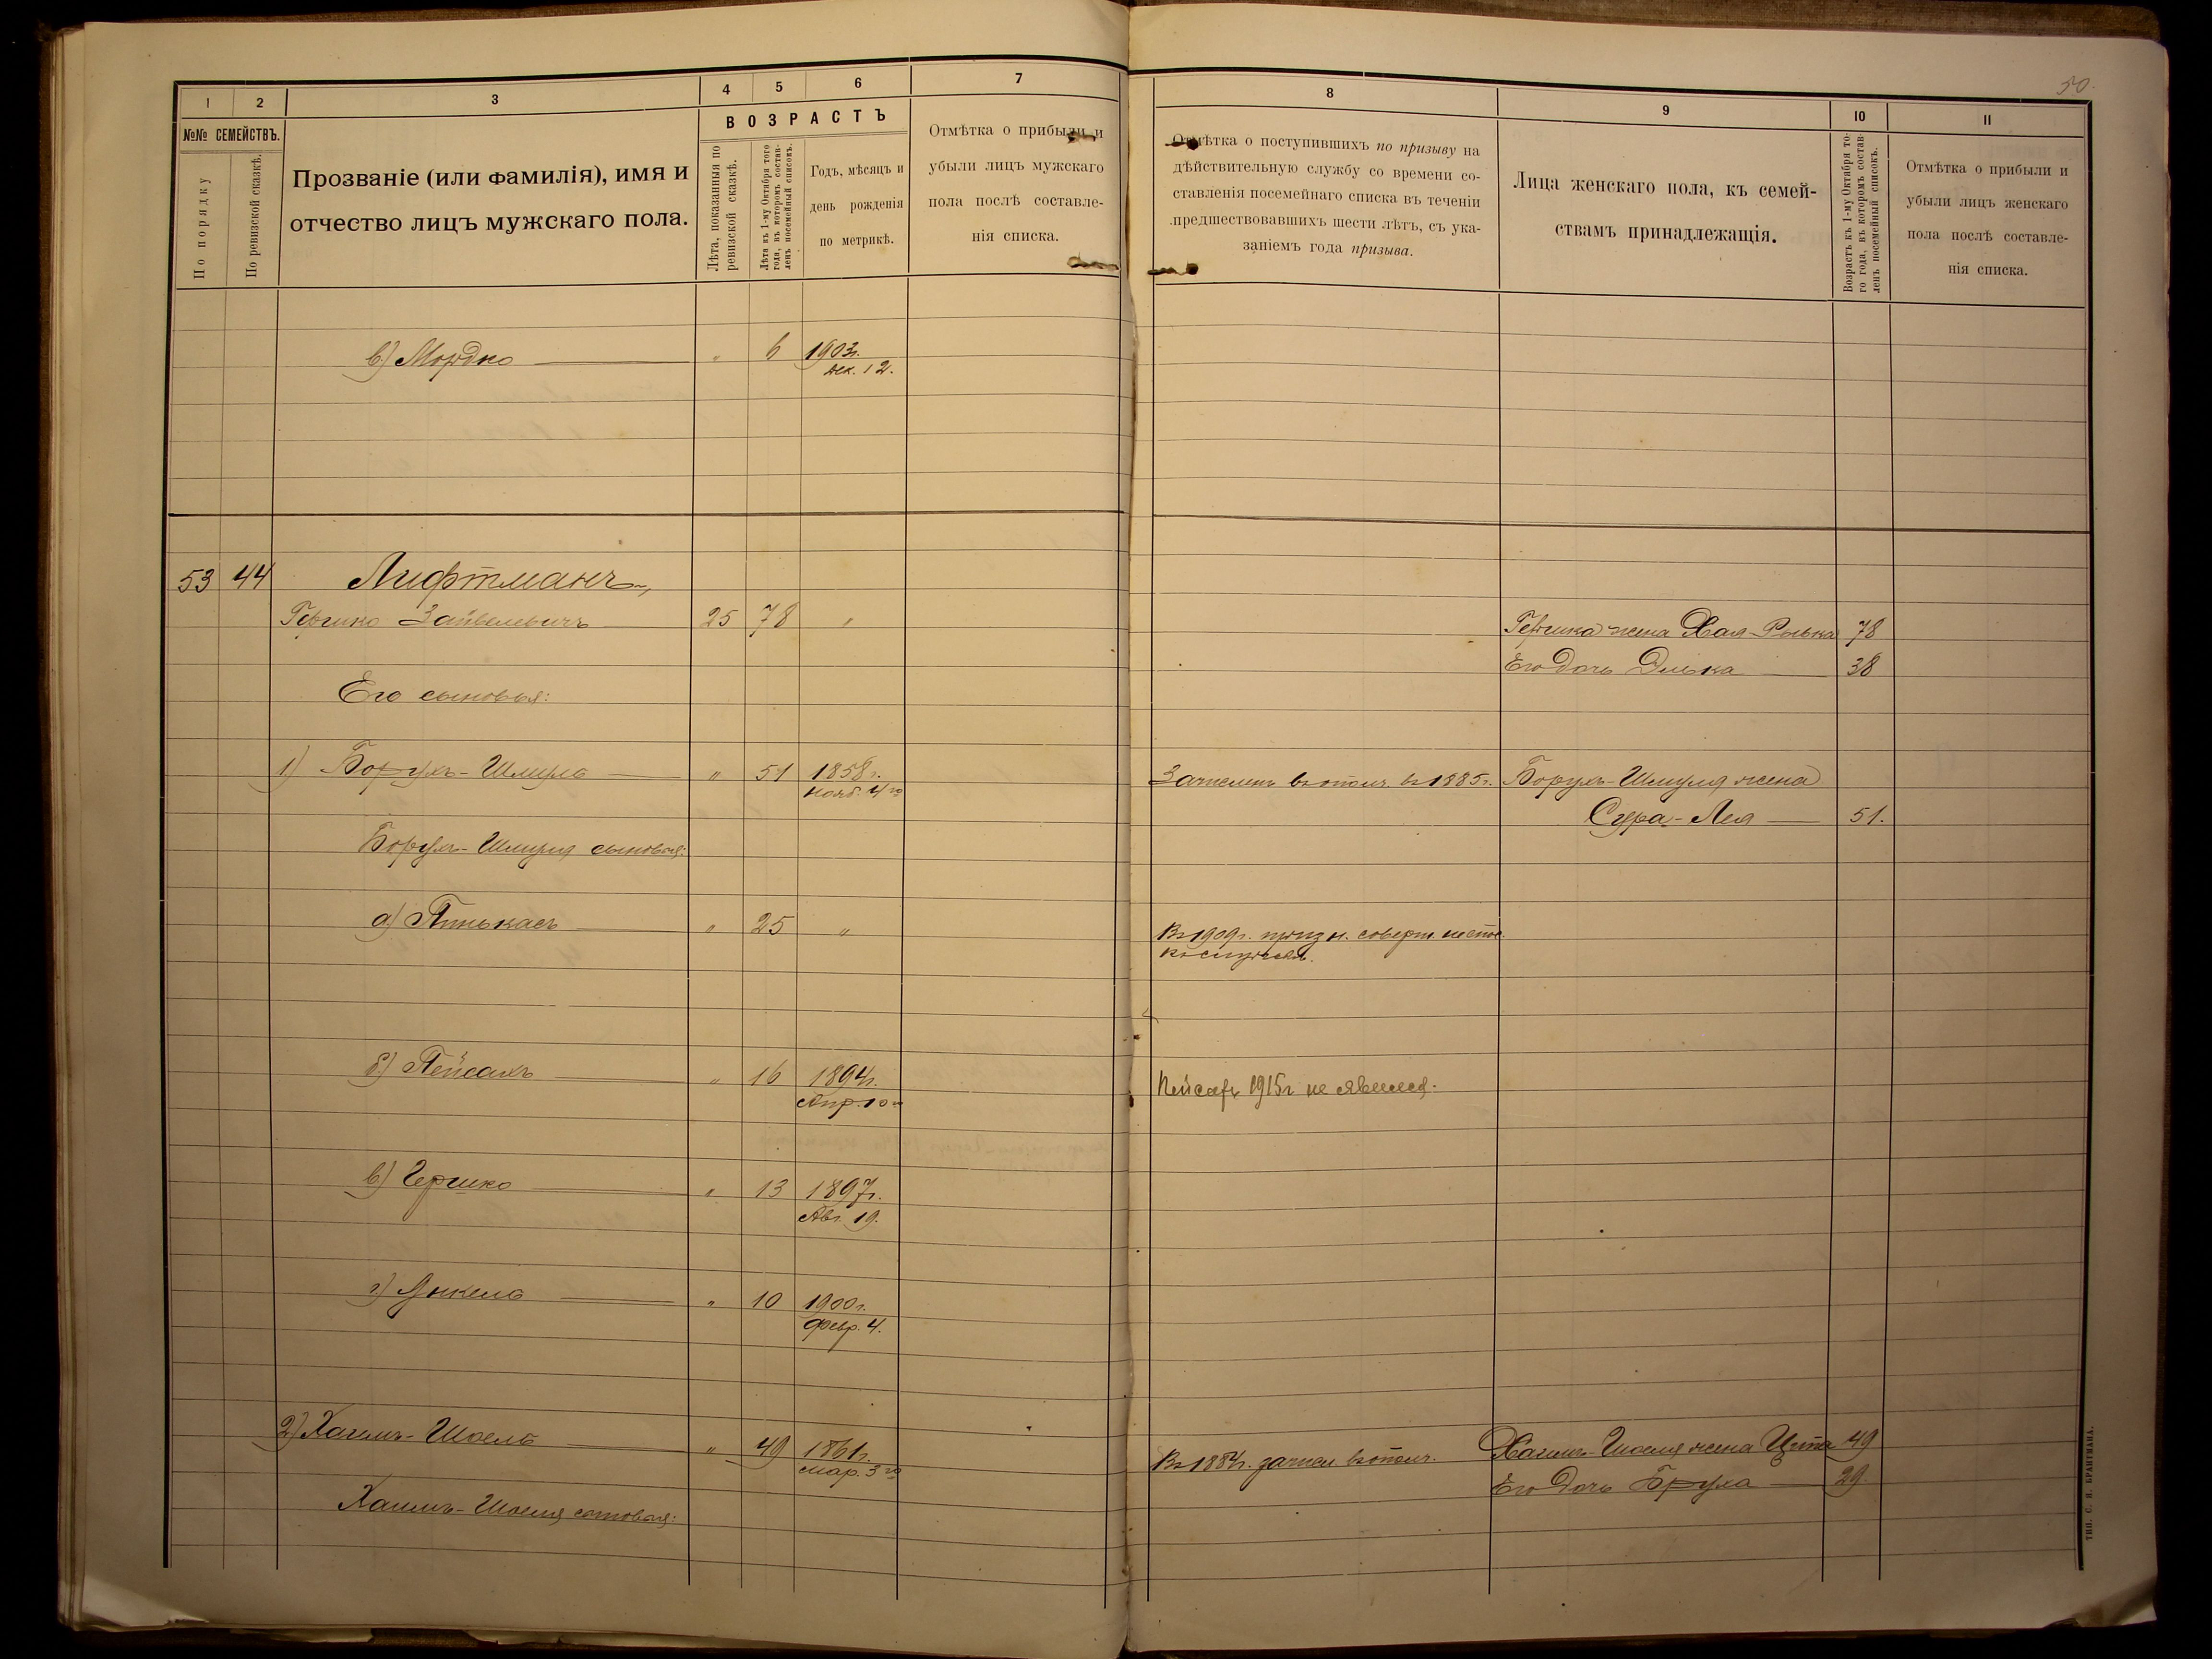 50.
1 2 3 4 5 6 7
№№ СЕМЕЙСТВЪ.
По порядку
По ревизской сказкѣ.
Прозваніе (или фамилія), имя и
отчество лицъ мужскаго пола.
ВОЗРАСТЪ
Лѣта, показанныя по
ревизской сказкѣ.
Лѣта къ 1-му Октября того
года, въ которомъ состав-
ленъ посемейный списокъ.
Годъ, мѣсяцъ и
день рожденія
по метрикѣ.
Отмѣтка о прибыли и
убыли лицъ мужскаго
пола послѣ составле-
нія списка.
в) Мордко " 6 1903г.
Дек. 12.
53 44 Лифтманъ,
Гершко Зайвелевичъ 25 78 "
Его сыновья:
1) Борухъ-Шмуль " 51 1858г.
Нояб. 4го
Борухъ-Шмуля сыновья:
а) Пинькасъ " 25 "
б) Пейсахъ " 16 1894г.
Апр. 10го
в) Гершко " 13 1897г.
Авг. 19.
г) Янкель " 10 1900г.
Февр. 4.
2) Хаимъ-Шоель " 49 1861г.
Мар. 3го
Хаимъ-Шоеля сыновья:
8 9 10 11
Отмѣтка о поступившихъ по призыву на
дѣйствительную службу со времени со-
ставленія посемейнаго списка въ теченіи
предшествовавшихъ шести лѣтъ, съ ука-
заніемъ года призыва.
Лица женскаго пола, къ семей-
ствамъ принадлежащія.
Возрастъ къ 1-му Октября то-
го года, въ которомъ состав-
ленъ посемейный списокъ.
Отмѣтка о прибыли и
убыли лицъ женскаго
пола послѣ составле-
нія списка.
Гершка жена Хая-Рывка 78
Его дочь Элька 38
Зачисленъ въ ополч. въ 1885г. Борухъ-Шмуля жена
Сура-Лея 51.
Въ 1909г. призн. соверш. неспос.
къ службѣ.
Пейсахъ 1915г. не явился.
Въ 1884г. зачисл. въ ополч. Хаимъ-Шоеля жена Цита 49
Его дочь Бруха 29.
ТИП. С. Я. БРАНТМАНА.